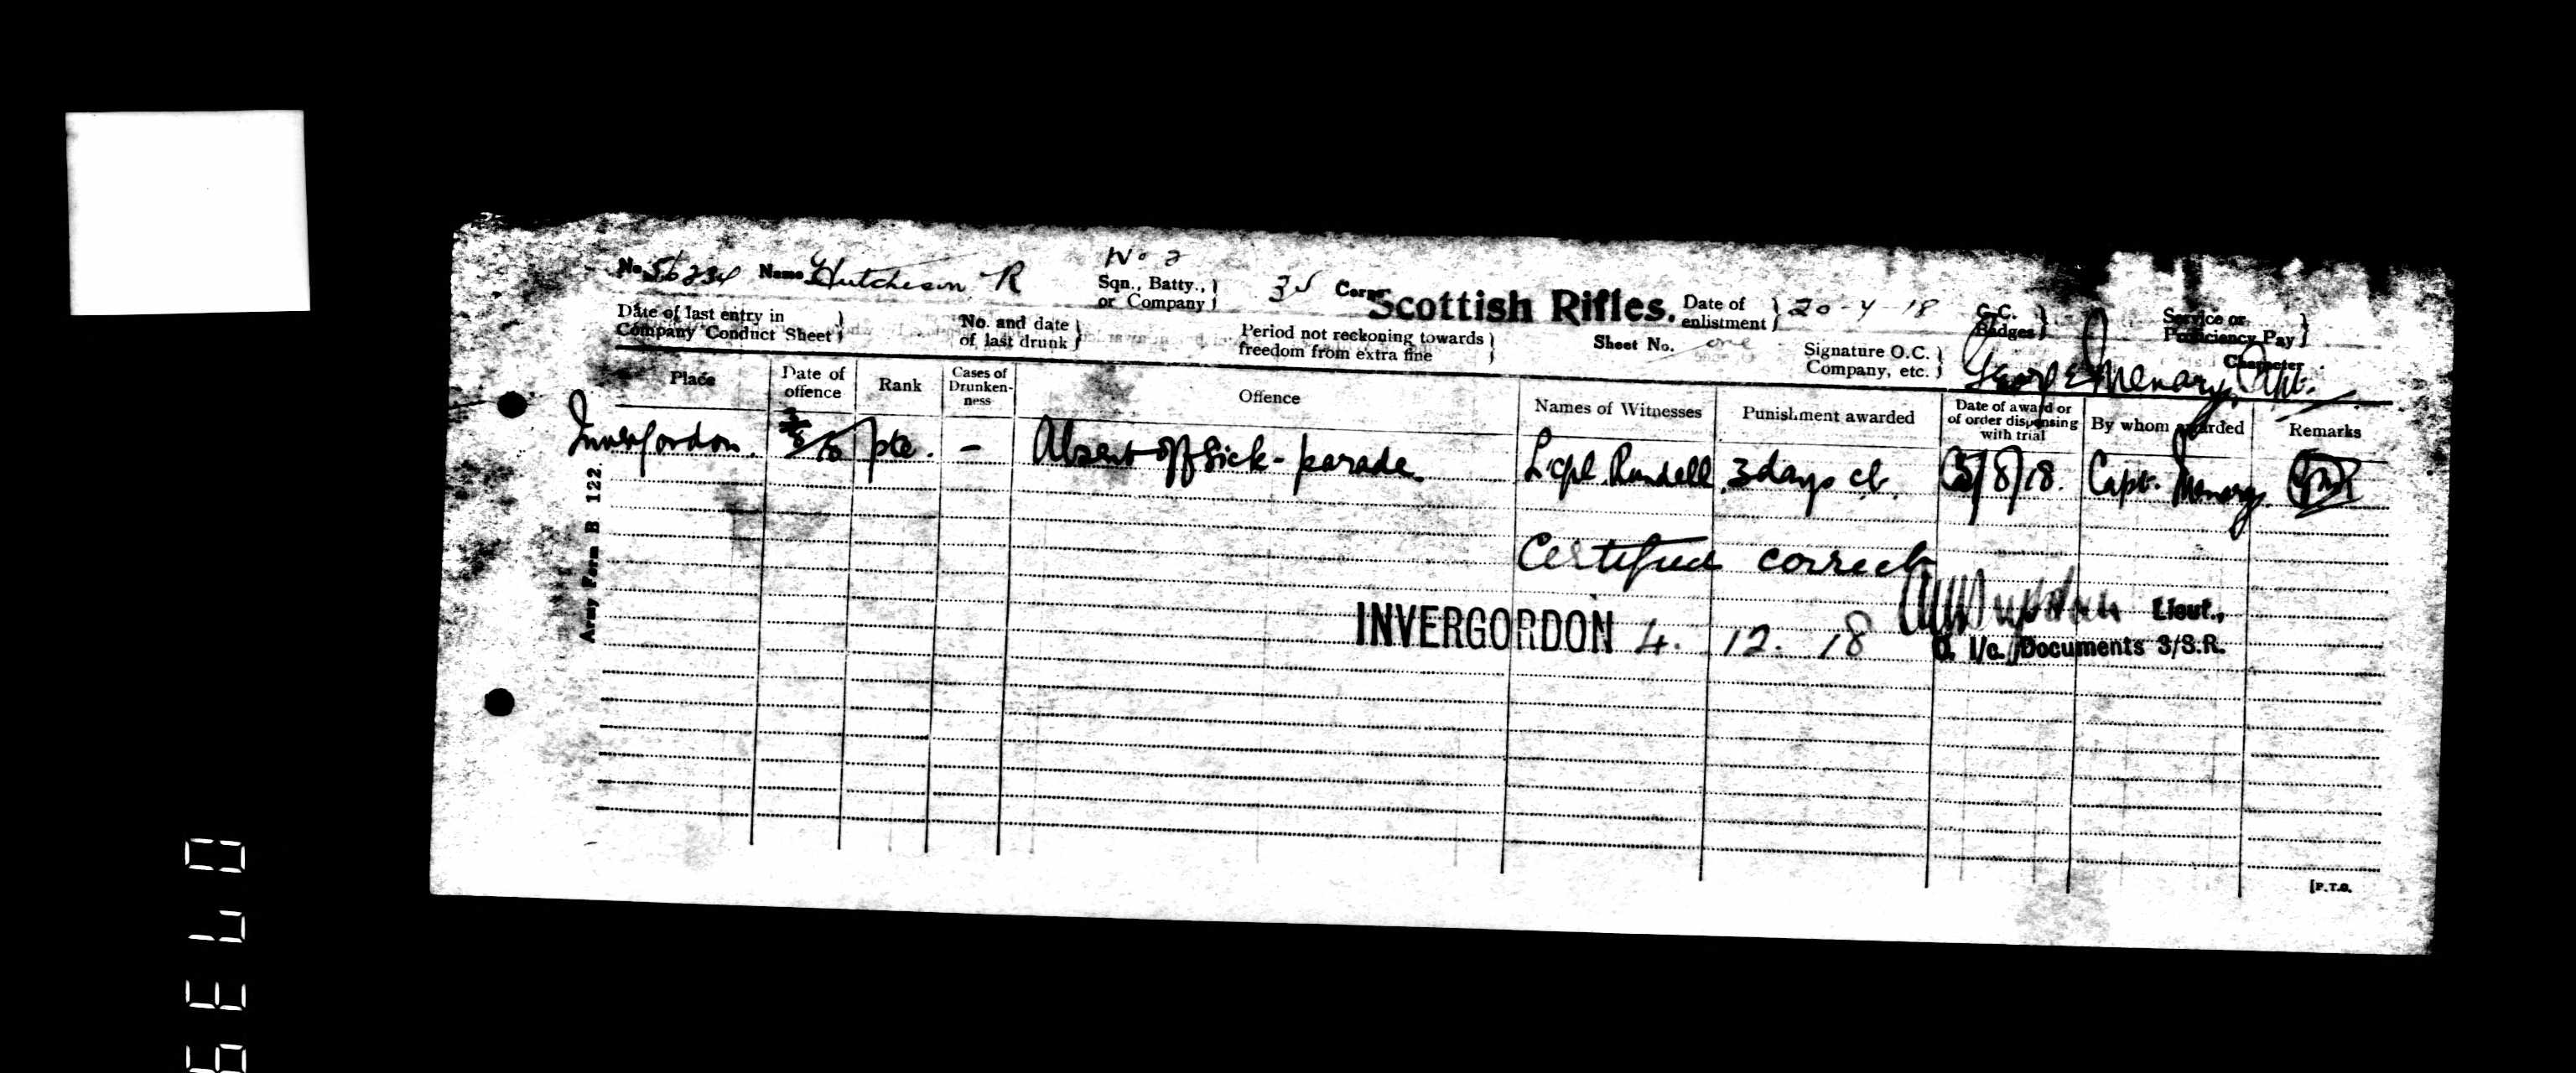 No. 56234 Name Hutcheson R No 2 Sqn., Batty., or Company 3d Corps Scottish Rifles. Date of enlistment 20-4-18 G.C. Badges Service or Proficiency Pay
Date of last entry in Company Conduct Sheet No. and date of last drunk Period not reckoning towards freedom from extra fine Sheet No. one Signature O.C. Company, etc. Menary, Capt. Character
Place Date of offence Rank Cases of Drunken-ness Offence Names of Witnesses Punishment awarded Date of award or of order dispensing with trial By whom awarded Remarks
Invergordon. pte. - Absent off Sick-parade L'cpl. Rundell 3 days cb. 8/18. Capt. Menary
Certified correct
INVERGORDON 4. 12. 18 Lieut.,
O. I/c. Documents 3/S.R.
Army Form B 122
[P.T.O.